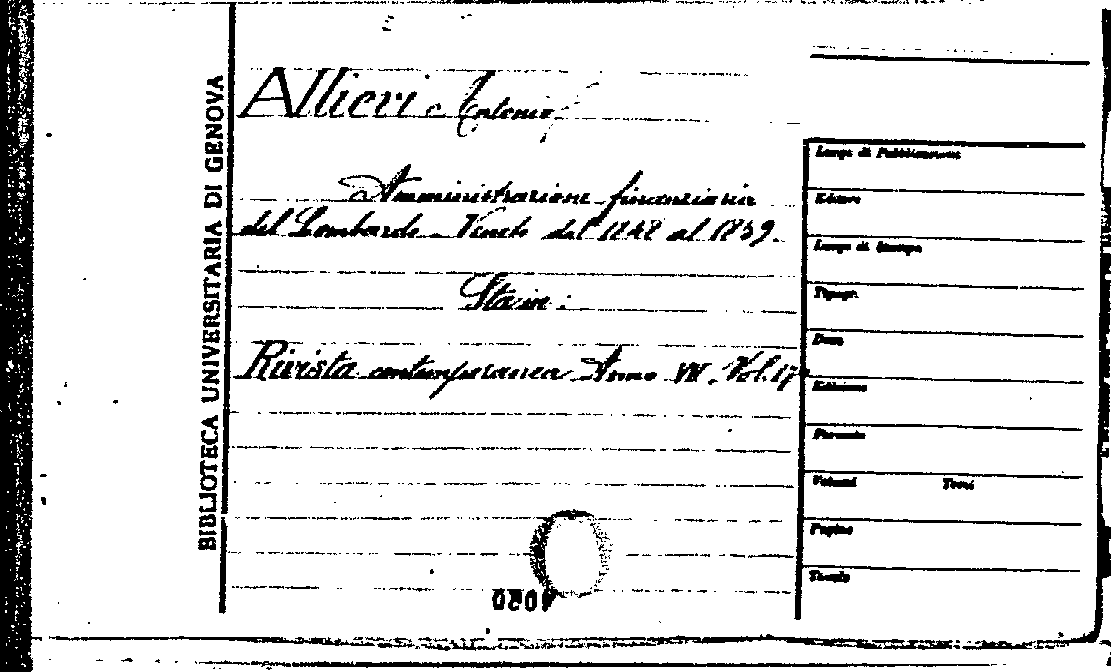 BIBLIOTECA UNIVERSITARIA DI GENOVA
Allievi Antonio
Amministrazione finanziaria
del Lombardo-Veneto dal 1848 al 1859.
Sta in:
Rivista contemporanea Anno VII. Vol. 17
Luogo di Pubblicazione
Editore
Luogo di Stampa
Tipogr.
Data
Edizione
Formato
Volumi Tomi
Pagine
Tavole